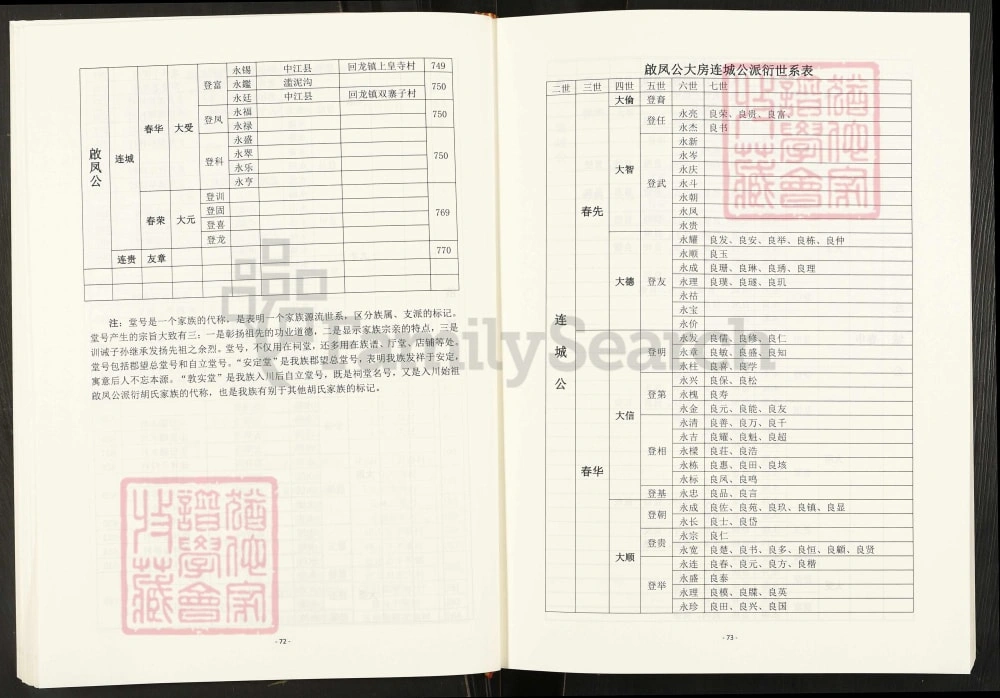 永锡 中江县 回龙镇上皇寺村 749
登富 永鑑 滥泥沟 750
永廷 中江县 回龙镇双寨子村
登凤 永福 750
永禄
春华 大受
永盛
永翠
登科 750
永乐
永亨
啟凤公 连城
登训
登固
春荣 大元 769
登喜
登龙
连贵 友章 770
注：堂号是一个家族的代称，是表明一个家族源流世系，区分族属、支派的标记。
堂号产生的宗旨大致有三：一是彰扬祖先的功业道德，二是显示家族宗亲的特点，三是
训诫子孙继承发扬先祖之余烈。堂号，不仅用在祠堂，还多用在族谱、厅堂、店铺等处。
堂号包括郡望总堂号和自立堂号。“安定堂”是我族郡望总堂号，表明我族发祥于安定，
寓意后人不忘本源。“敦实堂”是我族入川后自立堂号，既是祠堂名号，又是入川始祖
啟凤公派衍胡氏家族的代称，也是我族有别于其他胡氏家族的标记。
- 72 -
啟凤公大房连城公派衍世系表
二世 三世 四世 五世 六世 七世
连城公
春先
大倫 登裔
大智
登任 永亮 良荣、良贵、良富、
永杰 良书
登武 永新
永岑
永庆
永斗
永朝
永凤
永贵
大德 登友
永耀 良发、良安、良举、良栋、良仲
永顺 良玉
永成 良珊、良琳、良琇、良理
永理 良璞、良璲、良玑
永祜
永宝
永价
春华
大信
登明 永发 良信、良修、良仁
永章 良敏、良盛、良知
永柱 良喜、良学
登第 永兴 良保、良松
永槐 良寿
永金 良元、良能、良友
登相 永清 良善、良万、良千
永吉 良耀、良魁、良超
永樑 良荘、良浩
永栋 良惠、良田、良垓
永标 良凤、良鸣
登基 永忠 良品、良言
大顺
登朝 永成 良佐、良苑、良玖、良镇、良显
永长 良士、良岱
登贵 永宗 良仁
永宽 良楚、良书、良多、良恒、良顧、良贤
登举 永连 良春、良元、良方、良楷
永盛 良泰
永理 良模、良牒、良英
永珍 良田、良兴、良国
- 73 -
FamilySearch